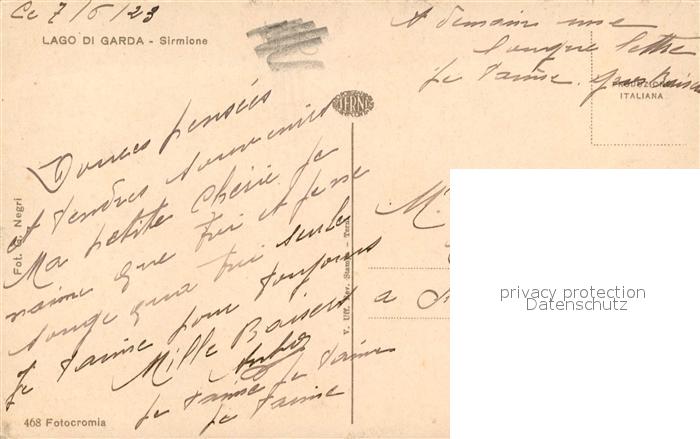 Ce 7/6/23
LAGO DI GARDA - Sirmione
A demain une
longue lettre
Je t'aime. gros Baisers
PRODUZIONE
ITALIANA
TERNI
Douces pensées
et tendres souvenirs
Ma petite Cherie. Je
n'aime que toi et je ne
songe qu'a toi seule
Je t'aime pour toujours
Mille Baisers
Je t'aime Je t'aime
Je t'aime
M.
a
Fot. G. Negri
V. Uff. Rev. Stampa - Terni
468 Fotocromia
privacy protection
Datenschutz